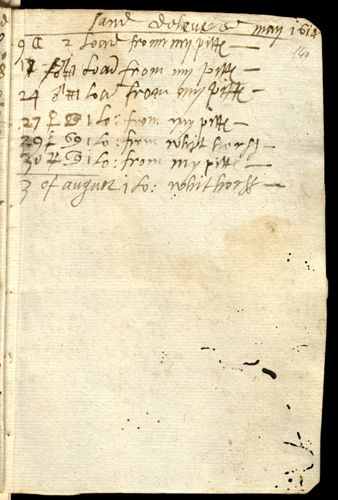 sand deliuered may 1614
140
9 2 load from my pitte
load from my pitte
24 1 load from my pitte
27 1 lo: from my pitte
29 1 lo: from whit horss
30 1 lo: from my pitte
3 of august 1 lo: whithorss